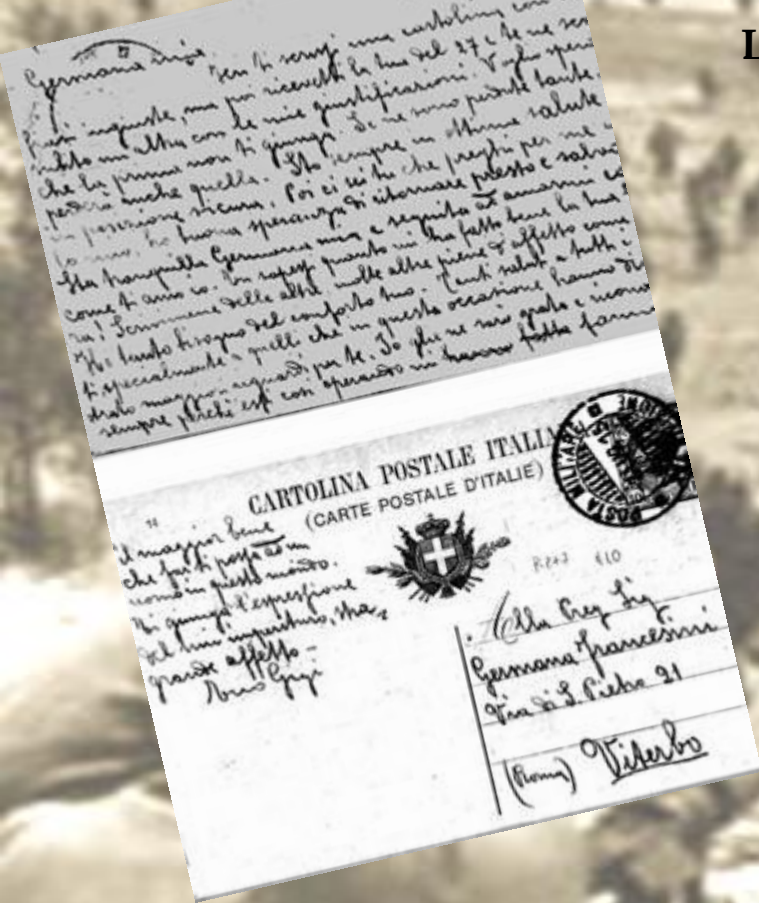 L
Germana mia
Ieri ti scrissi una cartolina con
frasi ingiuste, ma poi ricevetti la tua del 27 e te ne scri
subito un'altra con le mie giustificazioni. Voglio sper
che la prima non ti giunga. Se ne sono perdute tante,
perderà anche quella. Sto sempre in ottima salute
in posizione sicura. Poi ci sei tu che preghi per me e
io ho buona speranza di ritornare presto e salvo
Sta tranquilla Germana mia e seguita ad amarmi co
come ti amo io. Tu sapessi quanto mi ha fatto bene la tua
ra! Scrivimene delle altre, molte altre piene d'affetto come
Ho tanto bisogno del conforto tuo. Tanti saluti a tutti e
specialmente a quelli che in questa occasione hanno di
maggior riguardi per te. Io glie ne sarò grato e ricono
sempre perché essi così operando mi hanno fatto fanno
CARTOLINA POSTALE ITALIA
(CARTE POSTALE D'ITALIE)
POSTA MILITARE
il maggior bene
che far si possa ad un
uomo in questo mondo.
Ti giunga l'espressione
del mio imperituro, gra
grande affetto -
Tuo Gigi
Alla Greg. Sig.
Germana Francesini
Via di S. Pietro 21
(Roma) Viterbo